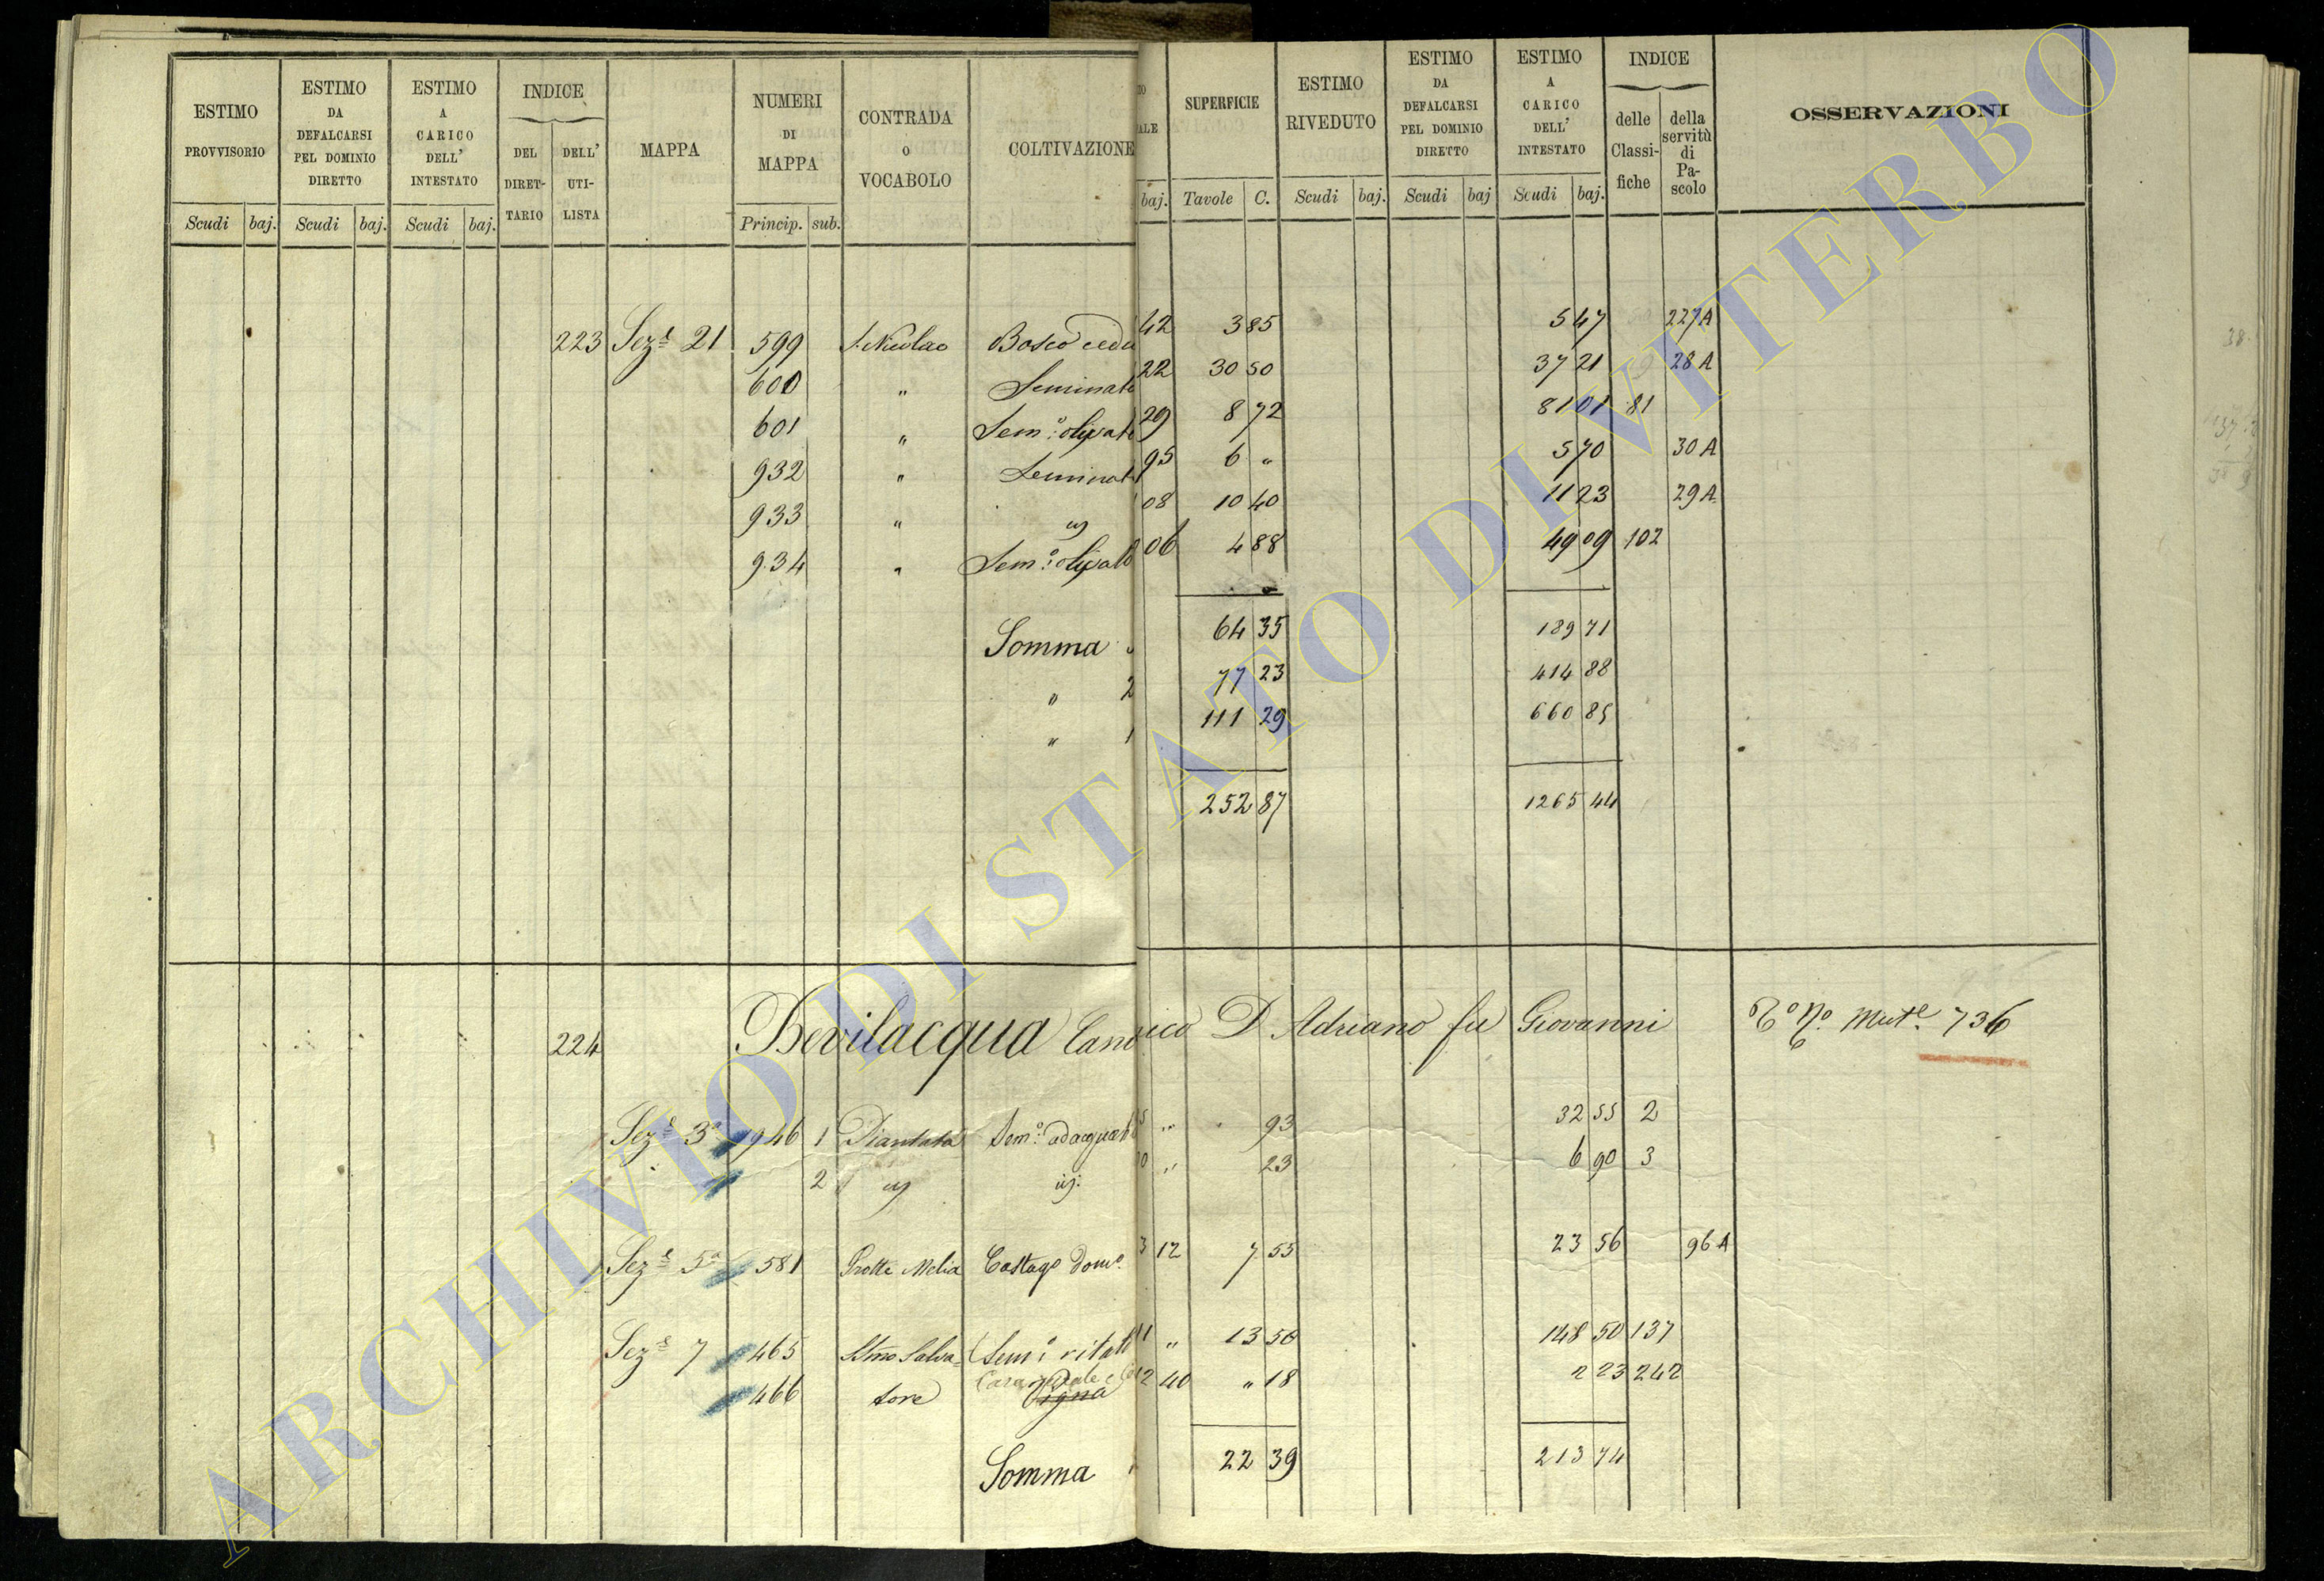 ESTIMO PROVVISORIO Scudi baj.
ESTIMO DA DEFALCARSI PEL DOMINIO DIRETTO Scudi baj.
ESTIMO A CARICO DELL' INTESTATO Scudi baj.
INDICE DEL DIRET-TARIO DELL' UTI-LISTA
MAPPA
NUMERI DI MAPPA Princip. sub.
CONTRADA O VOCABOLO
COLTIVAZIONE
ALE baj.
SUPERFICIE Tavole C.
ESTIMO RIVEDUTO Scudi baj.
ESTIMO DA DEFALCARSI PEL DOMINIO DIRETTO Scudi baj
ESTIMO A CARICO DELL' INTESTATO Scudi baj.
INDICE delle Classi-fiche della servitù di Pa-scolo
OSSERVAZIONI
223 Seze 21 599 S. Nicolao Bosco cedu 42 3 85 5 47 227A
600 " Seminat 22 30 50 37 21 28 A
601 " Sem:o olivat 29 8 72 81 01 81
932 " Seminat 95 6 " 5 70 30 A
933 " 08 10 40 11 23 29 A
934 " Sem:o olivat 06 4 88 49 09 102
Somma 64 35 189 71
" 2 77 23 414 88
" 1 111 29 660 85
252 87 1265 44
224 Bevilacqua Canonico D. Adriano fu Giovanni Mute 736
Seze 3a 946 1 Piantata Sem:o adacquat " 93 32 55 2
2 " 23 6 90 3
Seze 5a 581 Grotte Melia Castago Domo 3 12 7 55 23 56 96 A
Seze 7 465 SSmo Salva= Sem:o vitat " 13 50 148 50 137
466 tore Vigna 2 40 " 18 2 23 242
Somma 22 39 213 74
ARCHIVIO DI STATO DI VITERBO